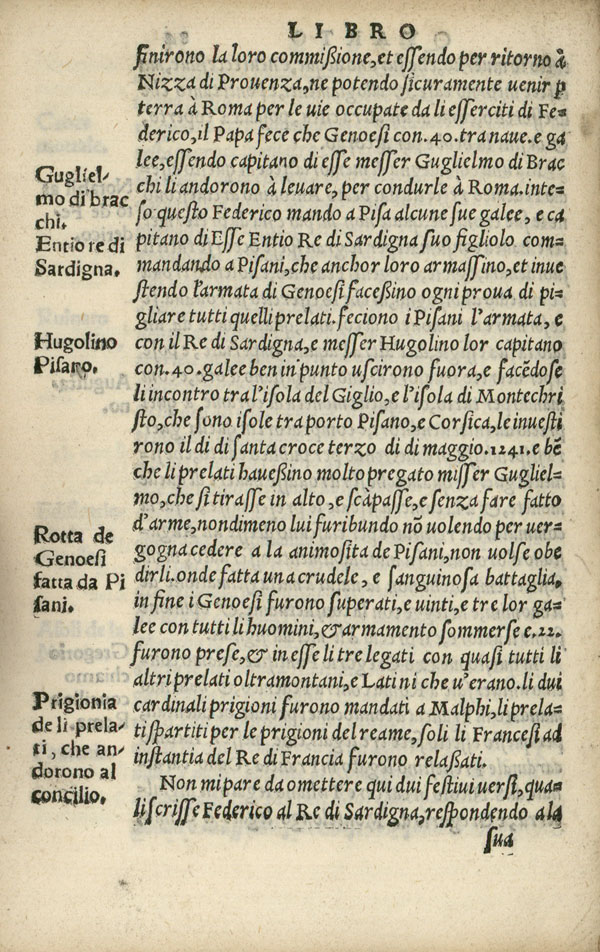 LIBRO
finirono la loro commißione, et eſſendo per ritorno à
Nizza di Prouenza, ne potendo ſicuramente uenir ꝑ
terra à Roma per le uie occupate da li eſſerciti di Fe-
derico, il Papa fece che Genoeſi con .40. tra naue. e ga
lee, eſſendo capitano di eſſe meſſer Guglielmo di Brac
chi li andorono à leuare, per condurle à Roma. inte-
ſo queſto Federico mando a Piſa alcune ſue galee, e ca
pitano di Eſſe Entio Re di Sardigna ſuo figliolo com-
mandando a Piſani, che anchor loro armaſſino, et inue
ſtendo l'armata di Genoeſi faceßino ogni proua di pi-
gliare tutti quelli prelati. feciono i Piſani l'armata, e
con il Re di Sardigna, e meſſer Hugolino lor capitano
con .40. galee ben in punto uſcirono fuora, e facēdoſe
li incontro tra l'iſola del Giglio, e l'iſola di Montechri
ſto, che ſono iſole tra porto Piſano, e Corſica, le inueſti
rono il di di ſanta croce terzo di di maggio .1241. e bē
che li prelati haueßino molto pregato miſſer Gugliel-
mo, che ſi tiraſſe in alto, e ſcàpaſſe, e ſenza fare fatto
d'arme, nondimeno lui furibundo nō uolendo per uer-
gogna cedere a la animoſita de Piſani, non uolſe obe
dirli. onde fatta una crudele, e ſanguinoſa battaglia,
in fine i Genoeſi furono ſuperati, e uinti, e tre lor ga-
lee con tutti li huomini, & armamento ſommerſe e .22.
furono preſe, & in eſſe li tre legati con quaſi tutti li
altri prelati oltramontani, e Latini che u'erano. li dui
cardinali prigioni furono mandati a Malphi, li prela-
ti ſpartiti per le prigioni del reame, ſoli li Franceſi ad
inſtantia del Re di Francia furono relaßati.
Non mi pare da omettere qui dui feſtiui uerſi, qua-
li ſcriſſe Federico al Re di Sardigna, reſpondendo a la
ſua
Gugliel-
mo di brac
chi.
Entio re di
Sardigna.
Hugolino
Piſano.
Rotta de
Genoeſi
fatta da Pi
ſani.
Prigionia
de li prela-
ti, che an-
dorono al
concilio.